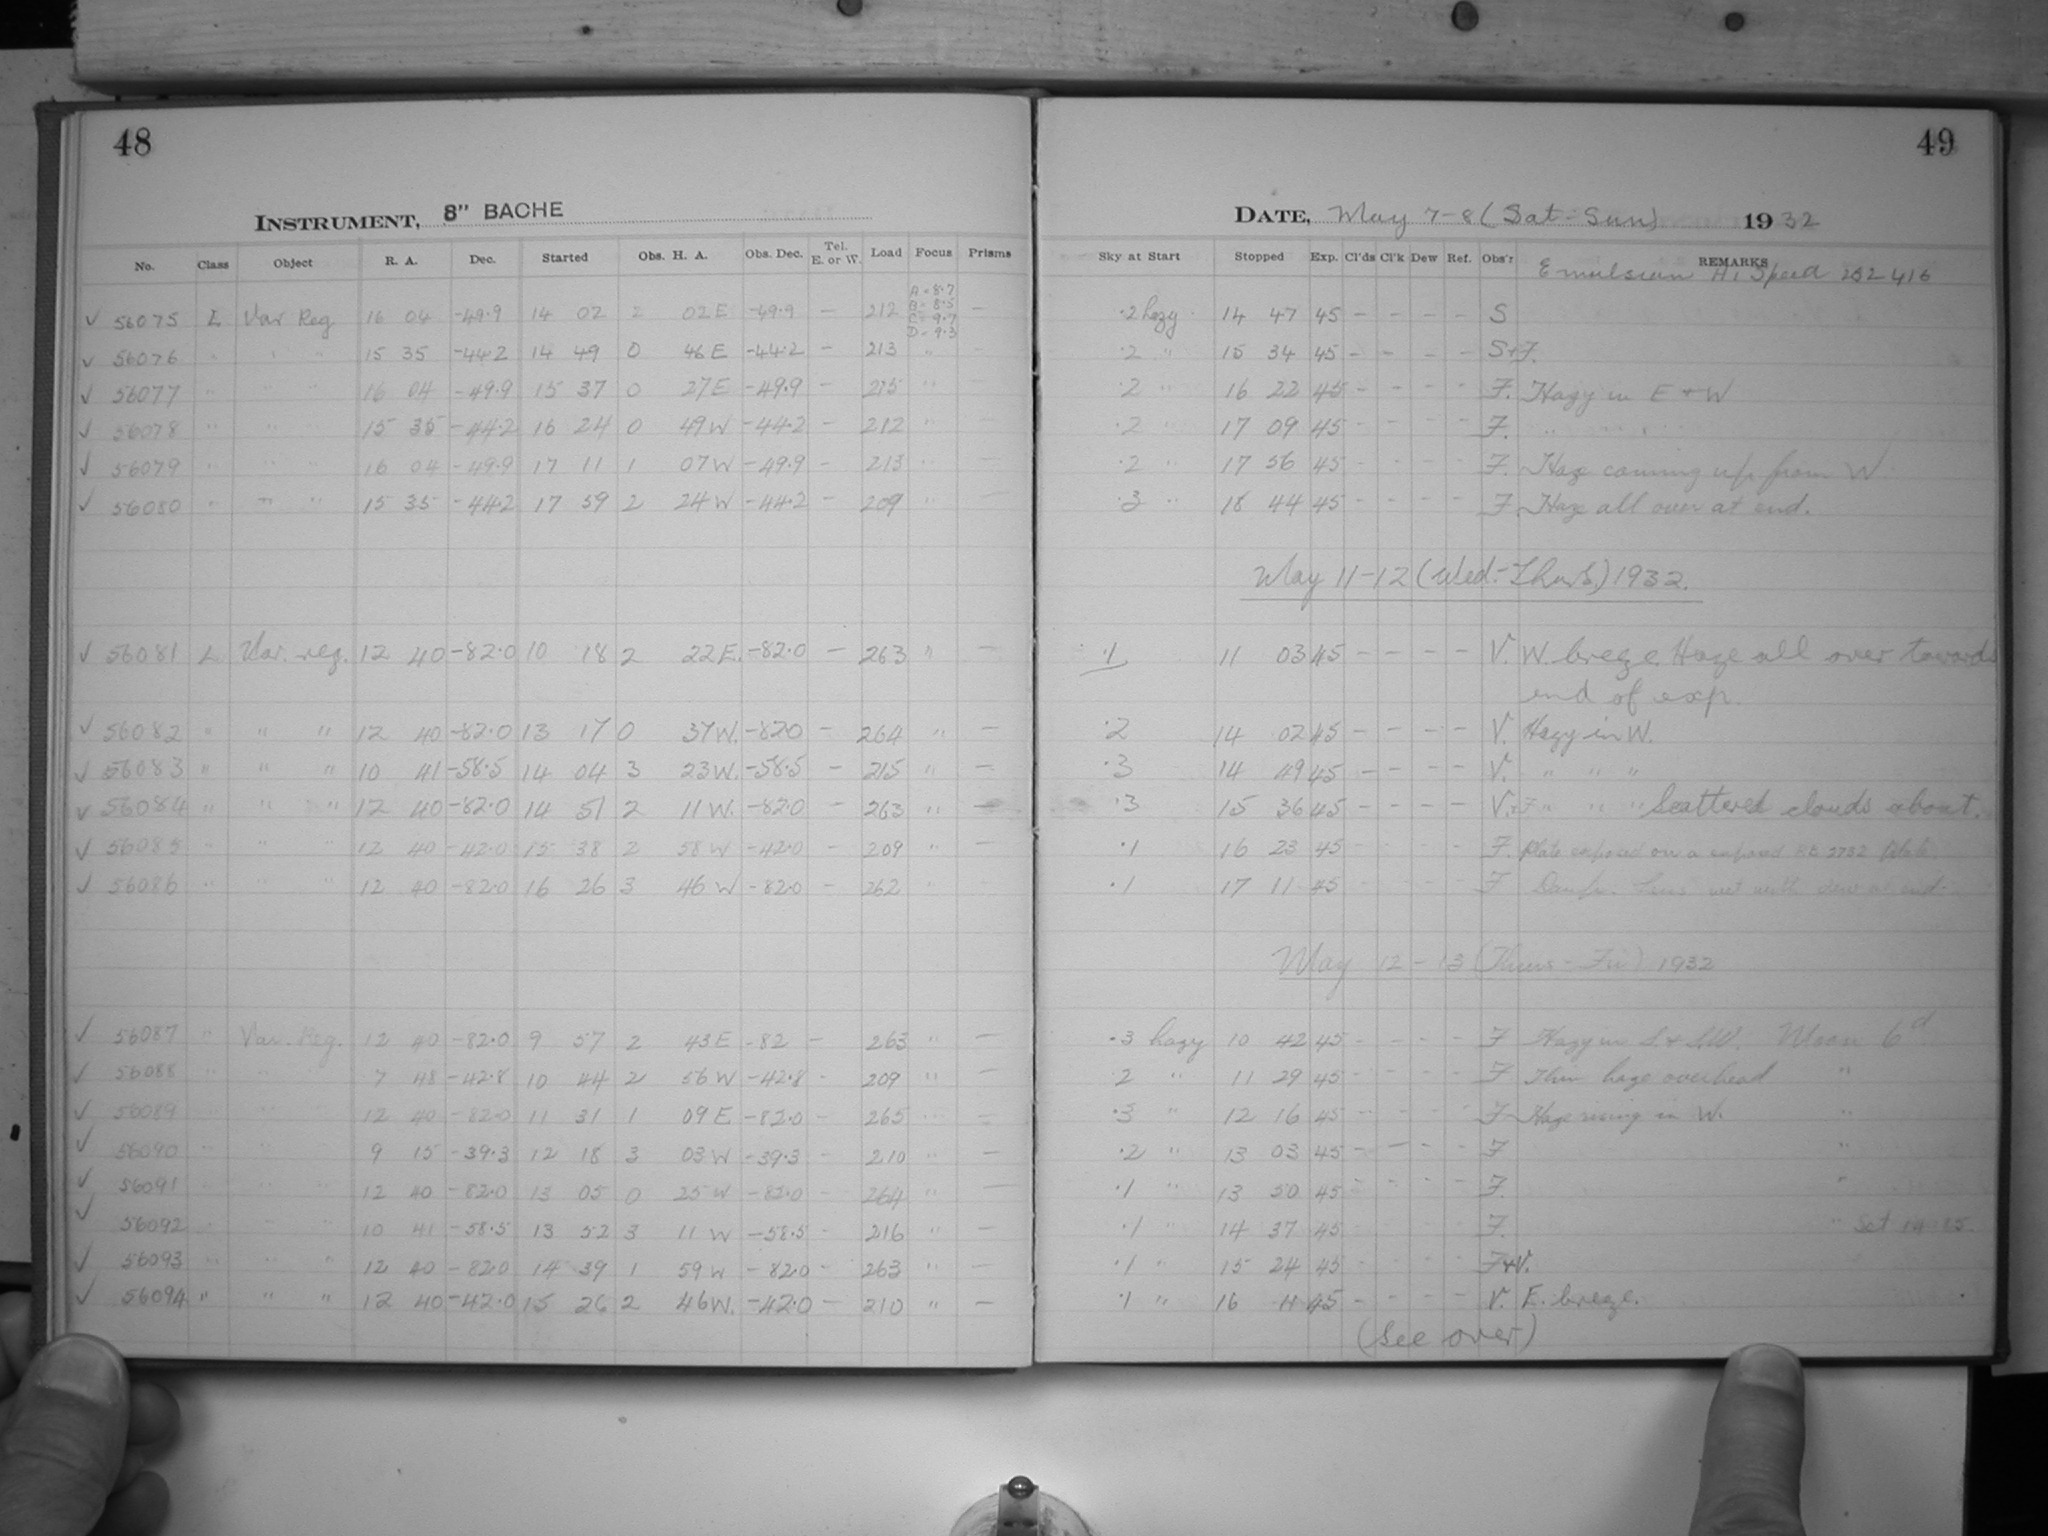 48
INSTRUMENT, 8" BACHE
No. Class Object R. A. Dec. Started Obs. H. A. Obs. Dec. Tel. E. or W. Load Focus Prisms
A = 8.7
B = 8.5
C = 9.7
D = 9.3
✓ 56075 L Var Reg 16 04 -49.9 14 02 2 02 E -49.9 - 212 -
✓ 56076 " " " 15 35 -44.2 14 49 0 46 E -44.2 - 213 " -
✓ 56077 " " " 16 04 -49.9 15 37 0 27 E -49.9 - 215 " -
✓ 56078 " " " 15 35 -44.2 16 24 0 49 W -44.2 - 212 " -
✓ 56079 " " " 16 04 -49.9 17 11 1 07 W -49.9 - 213 " -
✓ 56080 " " " 15 35 -44.2 17 59 2 24 W -44.2 - 209 " -
✓ 56081 L Var. reg. 12 40 -82.0 10 18 2 22 E. -82.0 - 263 " -
✓ 56082 " " " 12 40 -82.0 13 17 0 37 W. -82.0 - 264 " -
✓ 56083 " " " 10 41 -58.5 14 04 3 23 W. -58.5 - 215 " -
✓ 56084 " " " 12 40 -82.0 14 51 2 11 W. -82.0 - 263 " -
✓ 56085 " " " 12 40 -42.0 15 38 2 58 W -42.0 - 209 " -
✓ 56086 " " " 12 40 -82.0 16 26 3 46 W -82.0 - 262 " -
✓ 56087 " Var. Reg. 12 40 -82.0 9 57 2 43 E -82 - 263 " -
✓ 56088 " " " 7 48 -42.8 10 44 2 56 W -42.8 - 209 " -
✓ 56089 " " " 12 40 -82.0 11 31 1 09 E -82.0 - 265 " -
✓ 56090 " " " 9 15 -39.3 12 18 3 03 W -39.3 - 210 " -
✓ 56091 " " " 12 40 -82.0 13 05 0 25 W -82.0 - 264 " -
✓ 56092 " " " 10 41 -58.5 13 52 3 11 W -58.5 - 216 " -
✓ 56093 " " " 12 40 -82.0 14 39 1 59 W -82.0 - 263 " -
✓ 56094 " " " 12 40 -42.0 15 26 2 46 W. -42.0 - 210 " -
49
DATE, May 7-8 (Sat-Sun) 1932
Sky at Start Stopped Exp. Cl'ds Cl'k Dew Ref. Obs'r REMARKS
Emulsion Hi Speed 416
.2 hazy 14 47 45 - - - - S
.2 " 15 34 45 - - - - S+F.
.2 " 16 22 45 - - - - F. Hazy in E + W
.2 " 17 09 45 - - - - F. " " " "
.2 " 17 56 45 - - - - F. Haze coming up from W.
.3 " 18 44 45 - - - - F. Haze all over at end.
May 11-12 (Wed.-Thurs.) 1932.
.1 11 03 45 - - - - V. W. breeze. Haze all over towards
end of exp.
.2 14 02 45 - - - - V. Hazy in W.
.3 14 49 45 - - - - V. " " "
.3 15 36 45 - - - - V.+F " " " Scattered clouds about.
.1 16 23 45 - - - - F. Plate exposed on a exposed 2732 plate.
.1 17 11 45 - - - - F Damp. Lens wet with dew at end.
May 12-13 (Thurs-Fri) 1932
.3 hazy 10 42 45 - - - - F Hazy in S. + S.W. Moon 6d
.2 " 11 29 45 - - - - F Thin haze overhead "
.3 " 12 16 45 - - - - F Haze rising in W. "
.2 " 13 03 45 - - - - F "
.1 " 13 50 45 - - - - F. "
.1 " 14 37 45 - - - - F. " Set
.1 " 15 24 45 - - - - F+V.
.1 " 16 11 45 - - - - V. E. breeze.
(See over)